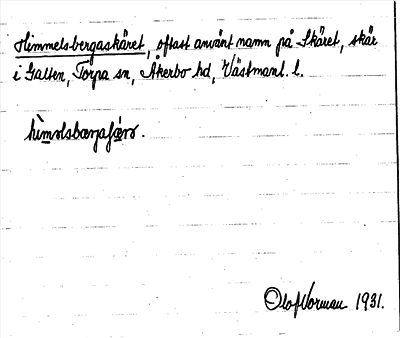 Himmelsbergaskäret, oftast använt namn på Skäret, skär
i Galten, Torpa sn, Åkerbo hd, Västmanl. l.
Olof Norman 1931.